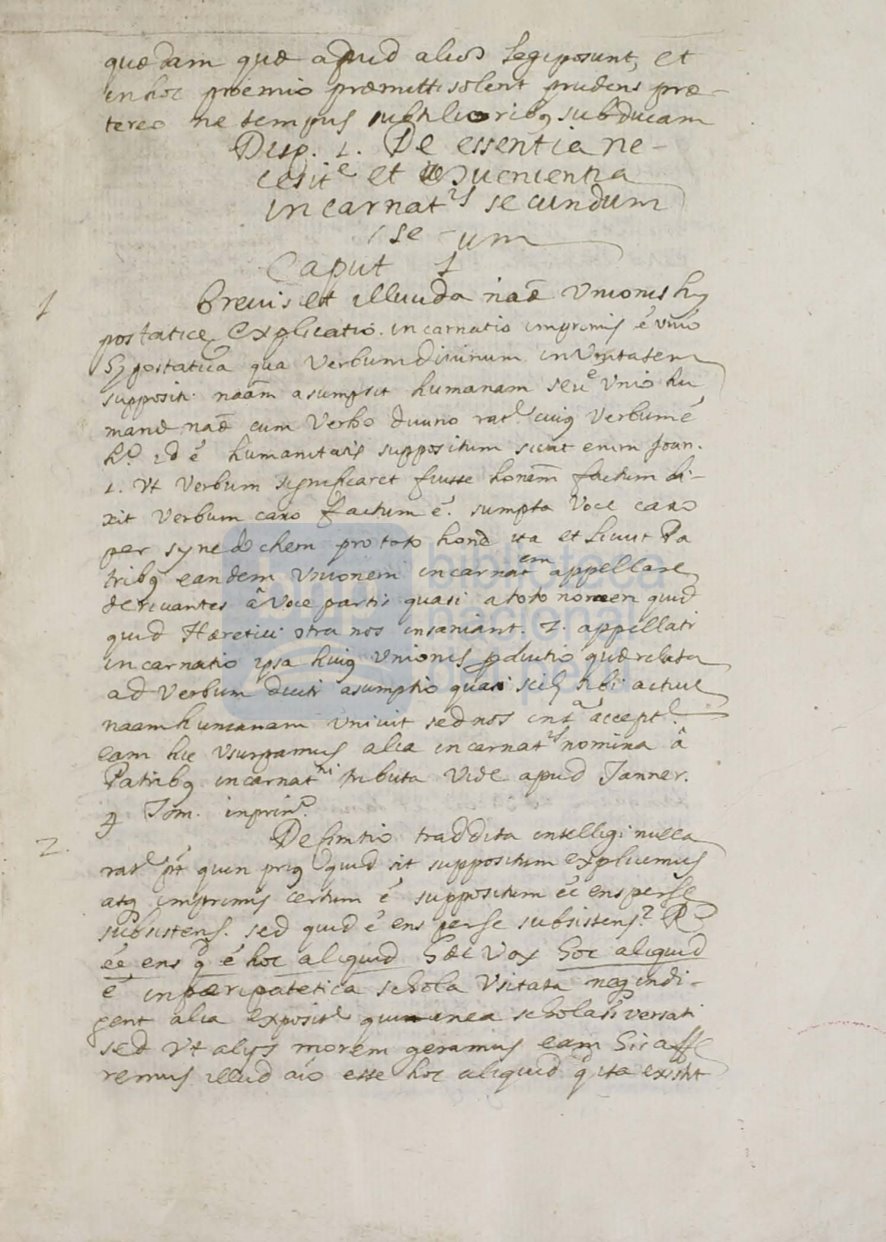 quædam quæ apud alios legi posunt, et
in hoc proemio præmitti solent prudens præ-
tereo ne tempus subtilioribq subducam
Disp. 1. De essentia ne-
cesit.e et Convenientia
incarnat.is secundum
se -um
Caput 1
1 Brevis et illucida naæ Unionis hy
postaticę explicatio. incarnatio imprimis ē unio
Hypostatica qua Verbum divinum in Unitatem
suppositi naām asumpsit humanam seu Unio hu
manæ naæ cum Verbo divino rat.e cuiq Verbum ē
h.o id ē humanitatis suppositum sicut enim Joan.
1. Ut Verbum significaret fuisse honēm factum di-
xit Verbum caro factum ē. sumpta Voce caro
per synedochem pro toto honē ita et licuit Pa
tribq eandem Unionem incarnat.em appellare
derivantes â Voce partis quasi a toto nomen quid
quid Hæretici otra nos insaniant. 2. appellati
incarnatio ipsa huiq Unionis pductio quæ relata
ad Verbum dicti asumptio quasi scil sibi active
naam humanam univit sed nos in 1.a accept.e
eam hic Usurpamus alia incarnat.is nomina â
Patribq incarnat.ni tributa Vide apud Tanner.
4 Tom. in prin.o
2. Definitio traddita intelligi nulla
rat.e pt quin priq quid sit suppositum explicemus
atq imprimis certum ē suppositum eē ens per se
subsistens. sed quid ē ens per se subsistens? R.o
eē ens q ē hoc aliquid Hæc Vox hoc aliquid
ē in pæripatetica schola Usitata neq indi-
gent alia exposit.e qui in ea scholasi versati
sed Ut alijs morem geramus eam Sic affe
remus illud aio esse hoc aliquid q ita existit